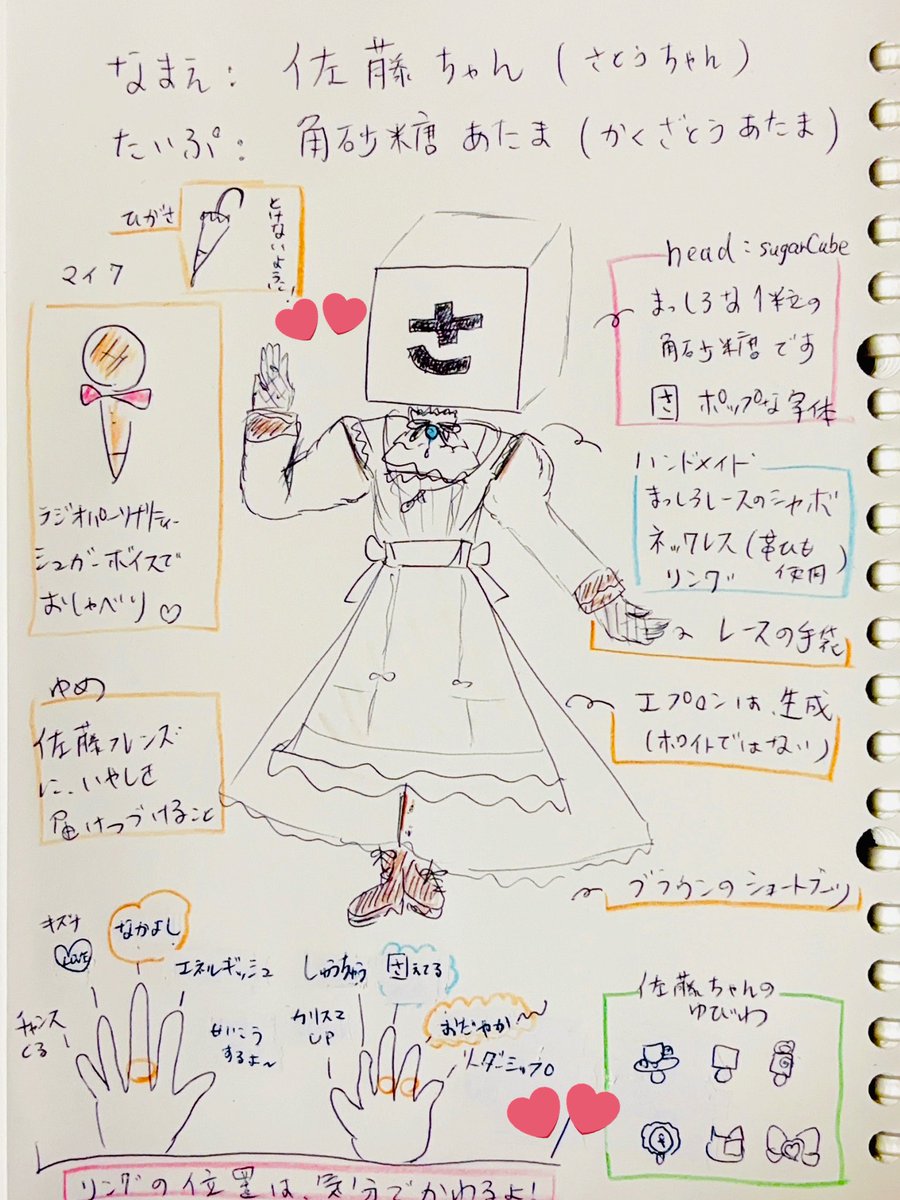 なまえ: 佐藤ちゃん(さとうちゃん)
たいぷ: 角砂糖あたま(かくざとうあたま)
ひがさ
とけないように!
マイク
ラジオパーソナリティー
シュガーボイスで
おしゃべり♡
さ
head: sugarCube
まっしろな1粒の
角砂糖です
さ ポップな字体
ハンドメイド
まっしろレースのシャボ
ネックレス(革ひも
使用)
リング
レースの手袋
エプロンは、生成
(ホワイトではない)
ゆめ
佐藤フレンズ
に、いやしを
届けつづけること
ブラウンのショートブーツ
キズナ
LOVE
なかよし
エネルギッシュ
チャンス
くる
せいこう
するよ〜
しゅうちゅう
さえてる
カリスマ
UP
おだやか〜
リーダーシップ
佐藤ちゃんの
ゆびわ
リングの位置は、気分でかわるよ!